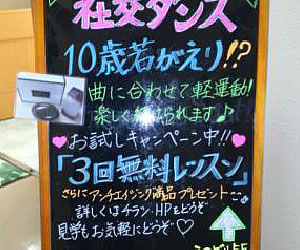 社交ダンス
10歳若がえり!?
曲に合わせて軽運動!
楽しく続けられます♪
♥お試しキャンペーン中!!♥
「3回無料レッスン」
さらにアンチエイジング商品プレゼント
詳しくはチラシ、HPもどうぞ
見学もお気軽にどうぞ♡